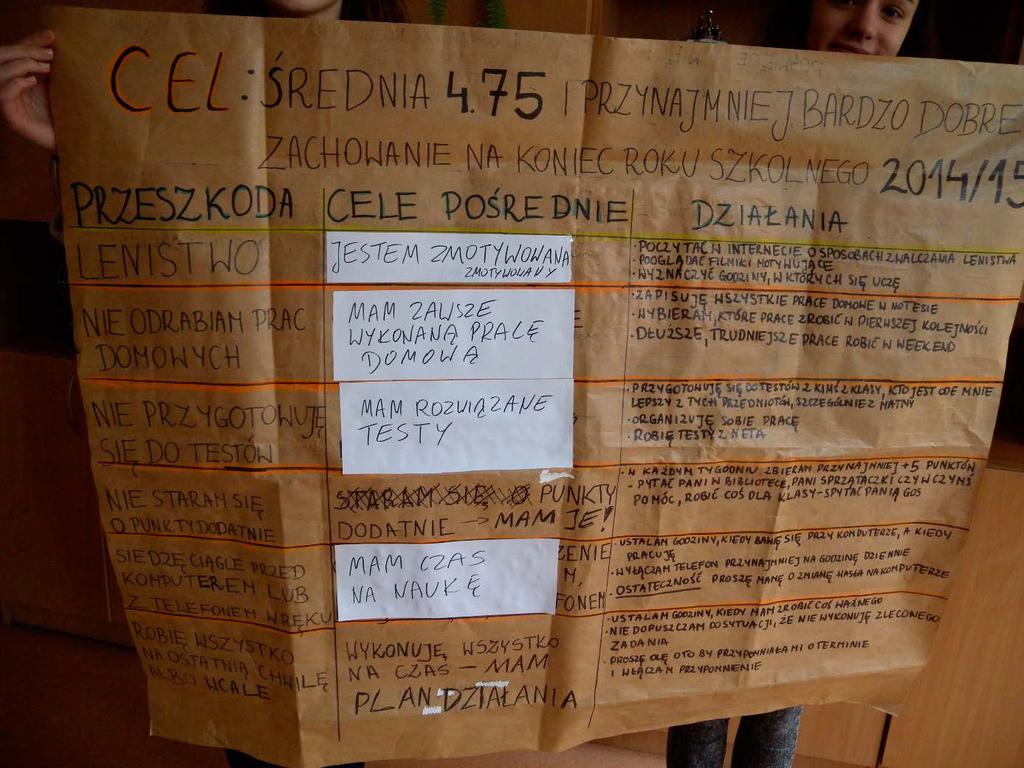 CEL: ŚREDNIA 4.75 I PRZYNAJMNIEJ BARDZO DOBRE
ZACHOWANIE NA KONIEC ROKU SZKOLNEGO 2014/15
PRZESZKODA
CELE POŚREDNIE
DZIAŁANIA
LENISTWO
JESTEM ZMOTYWOWANA
ZMOTYWOWANY
· POCZYTAĆ W INTERNECIE O SPOSOBACH ZWALCZANIA LENISTWA
· POOGLĄDAĆ FILMIKI MOTYWUJĄCE
· WYZNACZYĆ GODZINY, W KTÓRYCH SIĘ UCZĘ
NIE ODRABIAM PRAC
DOMOWYCH
MAM ZAWSZE
WYKONANĄ PRACĘ
DOMOWĄ
· ZAPISUJĘ WSZYSTKIE PRACE DOMOWE W NOTESIE
· WYBIERAM, KTÓRE PRACE ZROBIĆ W PIERWSZEJ KOLEJNOŚCI
· DŁUŻSZE, TRUDNIEJSZE PRACE ROBIĆ W WEEKEND
NIE PRZYGOTOWUJĘ
SIĘ DO TESTÓW
MAM ROZWIĄZANE
TESTY
· PRZYGOTOWUJĘ SIĘ DO TESTÓW Z KIMŚ Z KLASY, KTO JEST ODE MNIE
LEPSZY Z TYCH PRZEDMIOTÓW, SZCZEGÓLNIE Z MATMY
· ORGANIZUJĘ SOBIE PRACĘ
· ROBIĘ TESTY Z NETA
NIE STARAM SIĘ
O PUNKTY DODATNIE
STARAM SIĘ O PUNKTY
DODATNIE → MAM JE!
· W KAŻDYM TYGODNIU ZBIERAM PRZYNAJMNIEJ +5 PUNKTÓW
- PYTAĆ PANI W BIBLIOTECE, PANI SPRZĄTACZKI CZY W CZYMŚ
POMÓC, ROBIĆ COŚ DLA KLASY - SPYTAĆ PANIĄ GOS
SIEDZĘ CIĄGLE PRZED
KOMPUTEREM LUB
Z TELEFONEM W RĘKU
MAM CZAS
NA NAUKĘ
· USTALAM GODZINY, KIEDY BAWIĘ SIĘ PRZY KOMPUTERZE, A KIEDY
PRACUJĘ
· WYŁĄCZAM TELEFON PRZYNAJMNIEJ NA GODZINĘ DZIENNIE
· OSTATECZNOŚĆ PROSZĘ MAMĘ O ZMIANĘ HASŁA NA KOMPUTERZE
ROBIĘ WSZYSTKO
NA OSTATNIĄ CHWILĘ
ALBO WCALE
WYKONUJĘ WSZYSTKO
NA CZAS - MAM
PLAN DZIAŁANIA
· USTALAM GODZINY, KIEDY MAM ZROBIĆ COŚ WAŻNEGO
· NIE DOPUSZCZAM DO SYTUACJI, ŻE NIE WYKONUJĘ ZLECONEGO
ZADANIA
· PROSZĘ OLĘ O TO BY PRZYPOMNIAŁA MI O TERMINIE
I WŁĄCZAM PRZYPOMNIENIE